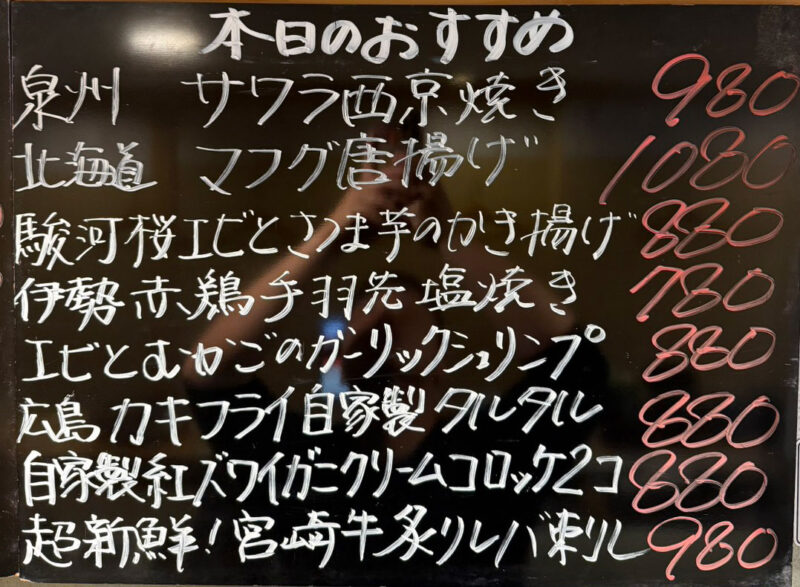 本日のおすすめ
泉州 サワラ西京焼き 980
北海道 マフグ唐揚げ 1080
駿河桜エビとさつま芋のかき揚げ 880
伊勢赤鶏手羽先塩焼き 780
エビとむかごのガーリックシュリンプ 880
広島カキフライ自家製タルタル 880
自家製紅ズワイガニクリームコロッケ2コ 880
超新鮮!宮崎牛炙りレバ刺し 980